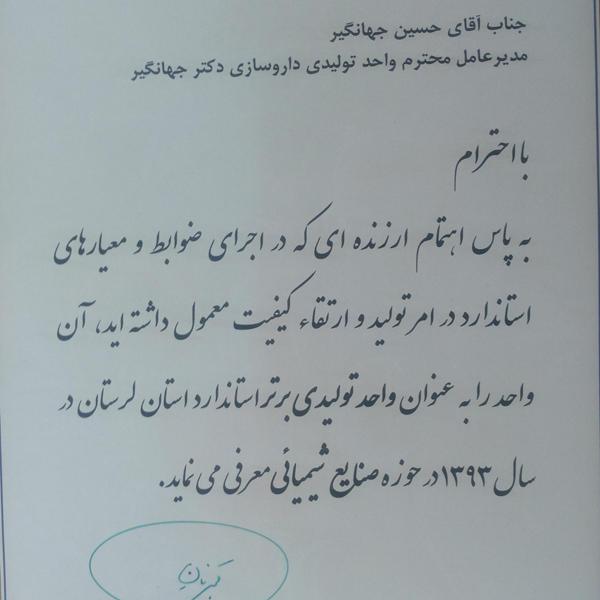 جناب آقای حسین جهانگیر
مدیرعامل محترم واحد تولیدی داروسازی دکتر جهانگیر
با احترام
به پاس اهتمام ارزنده ای که در اجرای ضوابط و معیارهای
استاندارد در امر تولید و ارتقاء کیفیت معمول داشته اید، آن
واحد را به عنوان واحد تولیدی برتر استاندارد استان لرستان در
سال ۱۳۹۳ در حوزه صنایع شیمیائی معرفی می نماید.